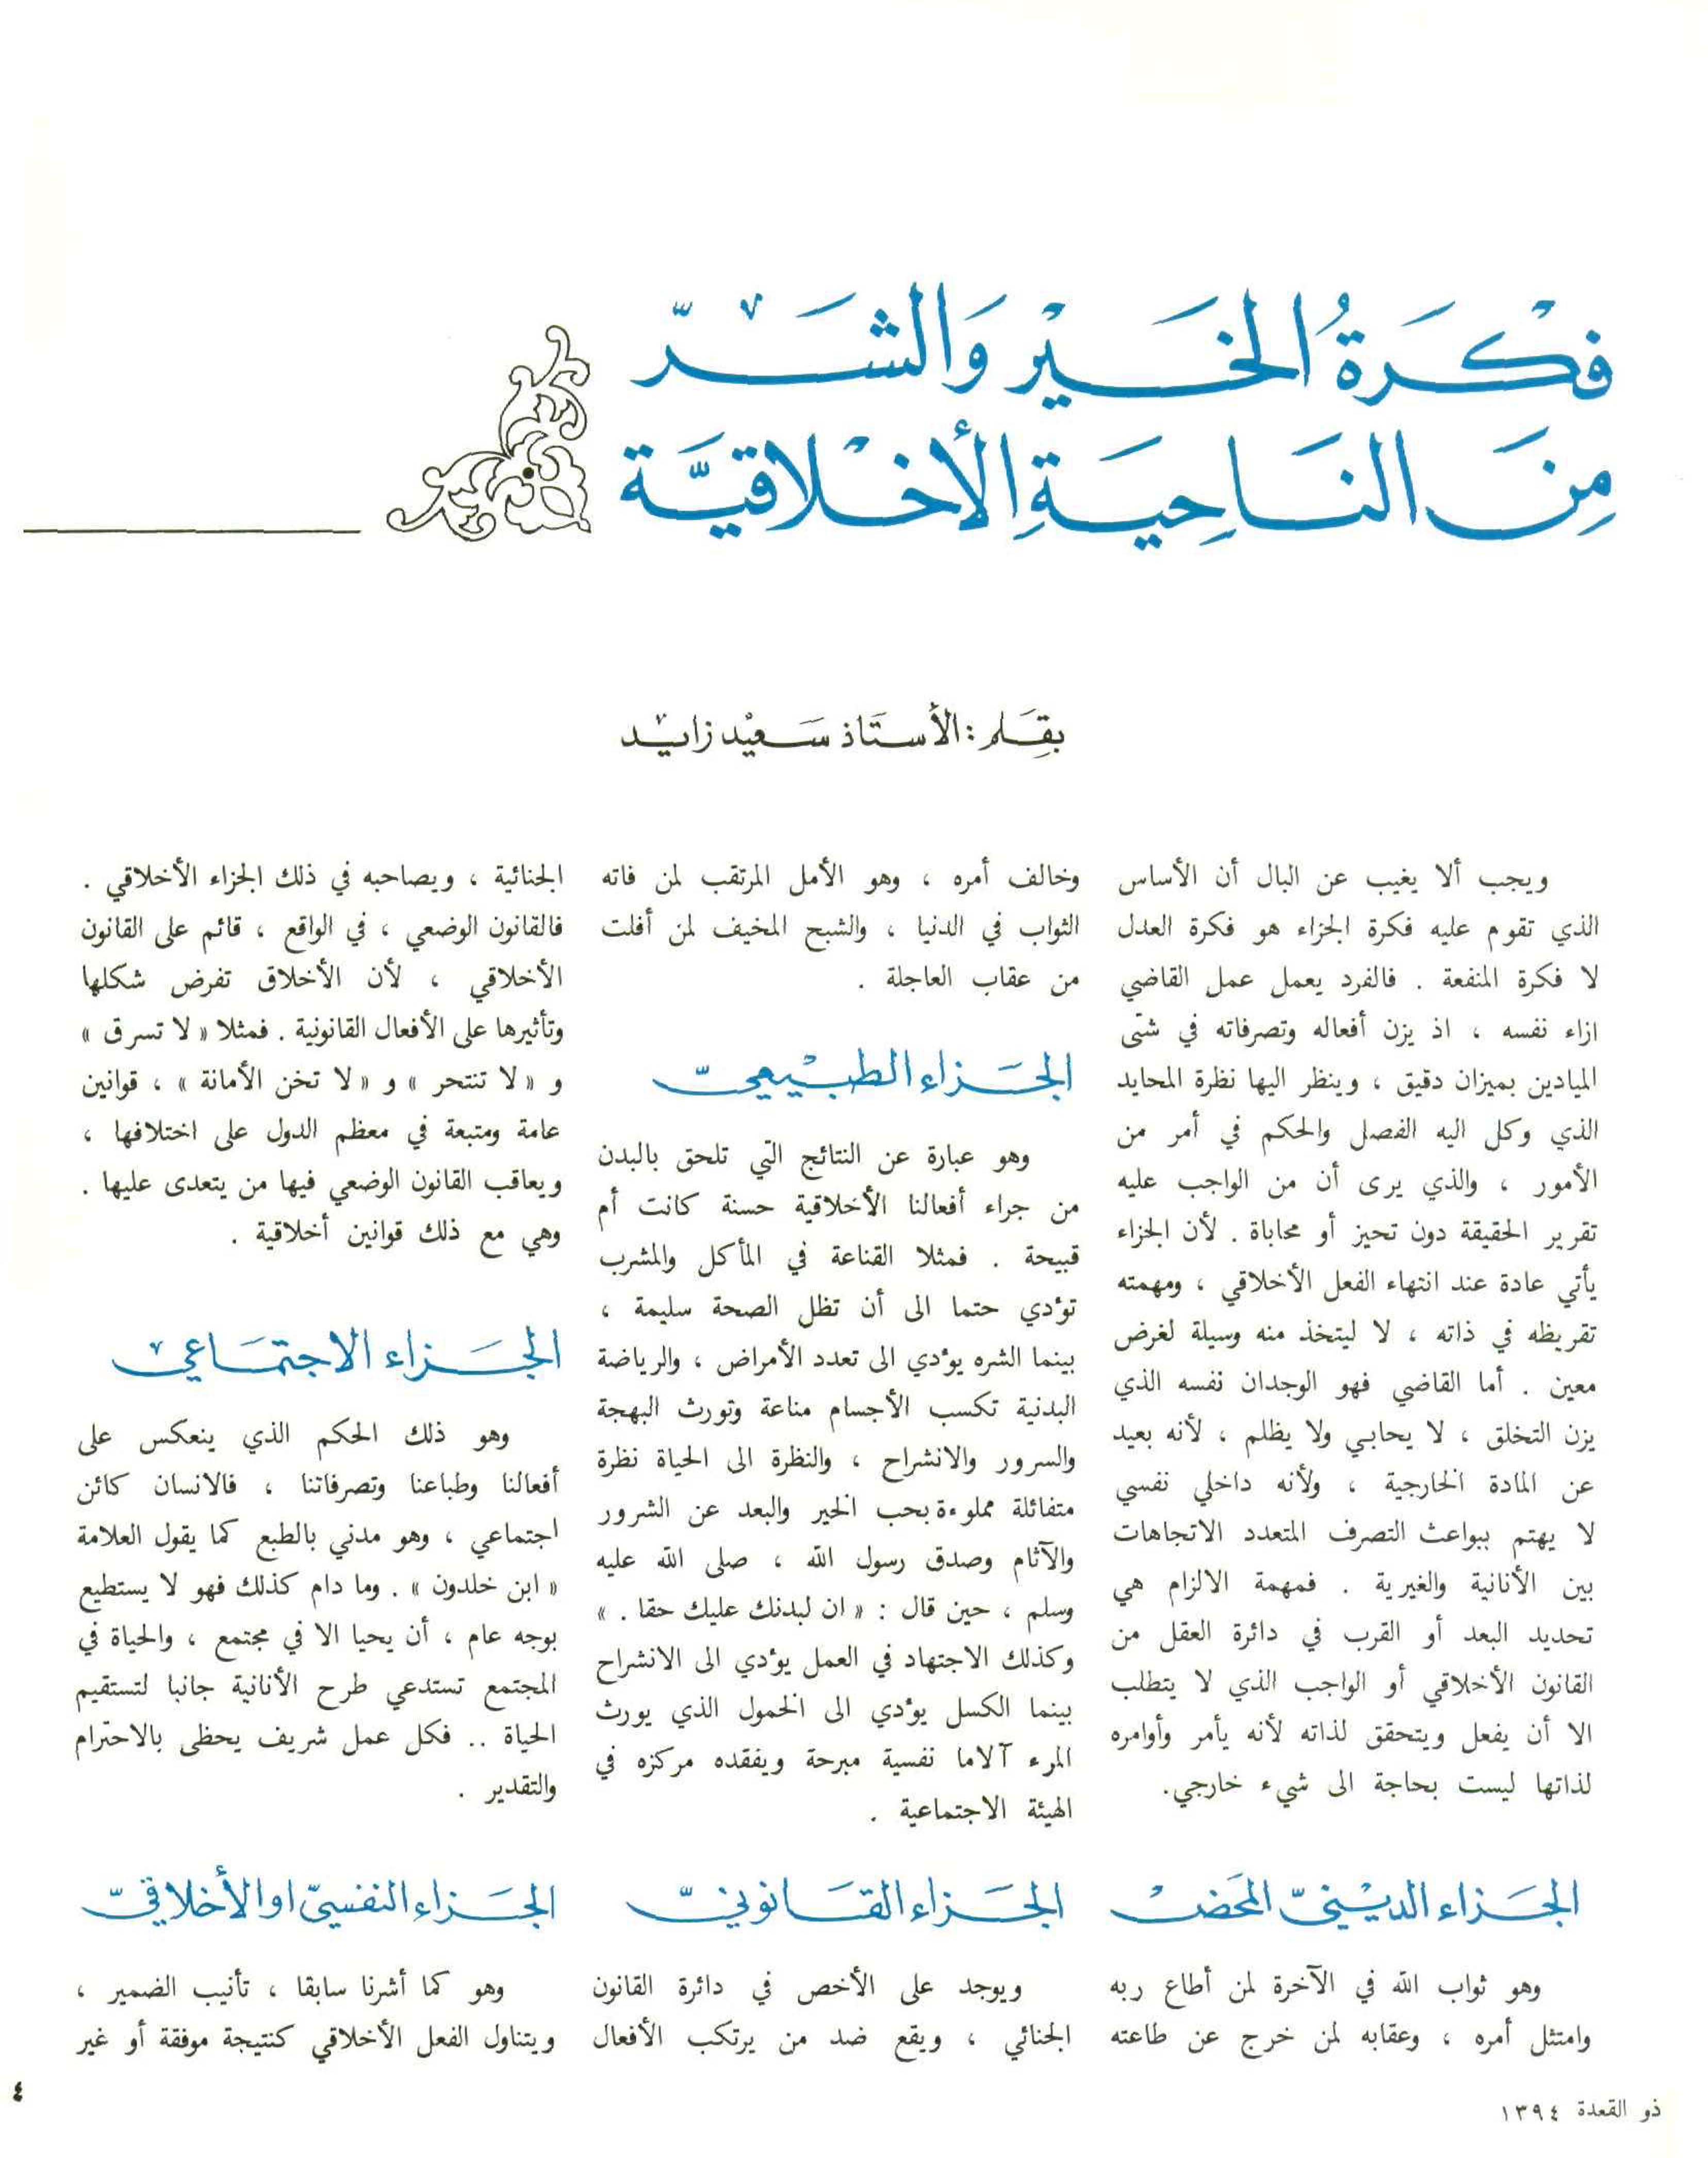 فكْرَةُ الخَيْر وَالشَّرّ
مِنَ النَاحِيَةِ الأخْلاقيَّة
بقِلَم : الأستَاذ سَعيْد زايْد
ويجب ألا يغيب عن البال أن الأساس
الذي تقوم عليه فكرة الجزاء هو فكرة العدل
لا فكرة المنفعة . فالفرد يعمل عمل القاضي
ازاء نفسه ، اذ يزن أفعاله وتصرفاته في شتى
الميادين بميزان دقيق ، وينظر اليها نظرة المحايد
الذي وكل اليه الفصل والحكم في أمر من
الأمور ، والذي يرى أن من الواجب عليه
تقرير الحقيقة دون تحيز أو محاباة . لأن الجزاء
يأتي عادة عند انتهاء الفعل الأخلاقي ، ومهمته
تقريظه في ذاته ، لا ليتخذ منه وسيلة لغرض
معين . أما القاضي فهو الوجدان نفسه الذي
يزن التخلق ، لا يحابي ولا يظلم ، لأنه بعيد
عن المادة الخارجية ، ولأنه داخلي نفسي
لا يهتم ببواعث التصرف المتعدد الاتجاهات
بين الأنانية والغيرية . فمهمة الالزام هي
تحديد البعد أو القرب في دائرة العقل من
القانون الأخلاقي أو الواجب الذي لا يتطلب
الا أن يفعل ويتحقق لذاته لأنه يأمر وأوامره
لذاتها ليست بحاجة الى شيء خارجي.
الجَزاء الديْنيّ المَحَضْ
وهو ثواب الله في الآخرة لمن أطاع ربه
وامتثل أمره ، وعقابه لمن خرج عن طاعته
وخالف أمره ، وهو الأمل المرتقب لمن فاته
الثواب في الدنيا ، والشبح المخيف لمن أفلت
من عقاب العاجلة .
الجَزاء الطبْيعيّ
وهو عبارة عن النتائج التي تلحق بالبدن
من جراء أفعالنا الأخلاقية حسنة كانت أم
قبيحة . فمثلا القناعة في المأكل والمشرب
تؤدي حتما الى أن تظل الصحة سليمة ،
بينما الشره يؤدي الى تعدد الأمراض ، والرياضة
البدنية تكسب الأجسام مناعة وتورث البهجة
والسرور والانشراح ، والنظرة الى الحياة نظرة
متفائلة مملوءة بحب الخير والبعد عن الشرور
والآثام وصدق رسول الله ، صلى الله عليه
وسلم ، حين قال : « ان لبدنك عليك حقا . »
وكذلك الاجتهاد في العمل يؤدي الى الانشراح
بينما الكسل يؤدي الى الخمول الذي يورث
المرء آلاما نفسية مبرحة ويفقده مركزه في
الهيئة الاجتماعية .
الجَزاء القَانونيّ
ويوجد على الأخص في دائرة القانون
الجنائي ، ويقع ضد من يرتكب الأفعال
الجنائية ، ويصاحبه في ذلك الجزاء الأخلاقي .
فالقانون الوضعي ، في الواقع ، قائم على القانون
الأخلاقي ، لأن الأخلاق تفرض شكلها
وتأثيرها على الأفعال القانونية . فمثلا « لا تسرق »
و « لا تنتحر » و « لا تخن الأمانة » ، قوانين
عامة ومتبعة في معظم الدول على اختلافها ،
ويعاقب القانون الوضعي فيها من يتعدى عليها .
وهي مع ذلك قوانين أخلاقية .
الجَزاء الاجتمَاعي
وهو ذلك الحكم الذي ينعكس على
أفعالنا وطباعنا وتصرفاتنا ، فالانسان كائن
اجتماعي ، وهو مدني بالطبع كما يقول العلامة
« ابن خلدون » . وما دام كذلك فهو لا يستطيع
بوجه عام ، أن يحيا الا في مجتمع ، والحياة في
المجتمع تستدعي طرح الأنانية جانبا لتستقيم
الحياة .. فكل عمل شريف يحظى بالاحترام
والتقدير .
الجَزاء النفسيّ او الأخلاقيّ
وهو كما أشرنا سابقا ، تأنيب الضمير ،
ويتناول الفعل الأخلاقي كنتيجة موفقة أو غير
ذو القعدة ١٣٩٤
٤